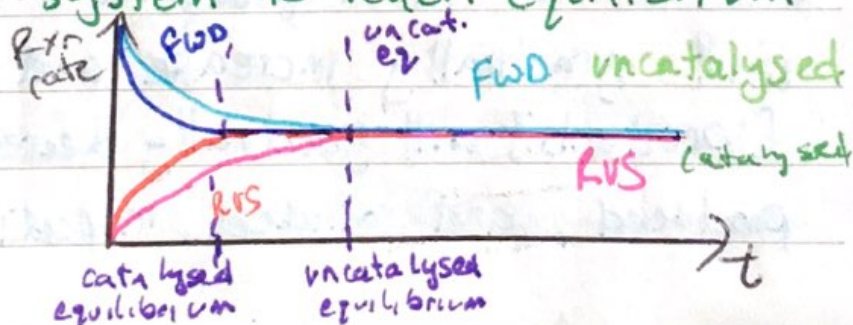 system to reach equilibrium
Rxn rate
FWD
uncat. eq
FWD uncatalysed
catalysed
RVS
RVS
t
catalysed equilibrium
uncatalysed equilibrium